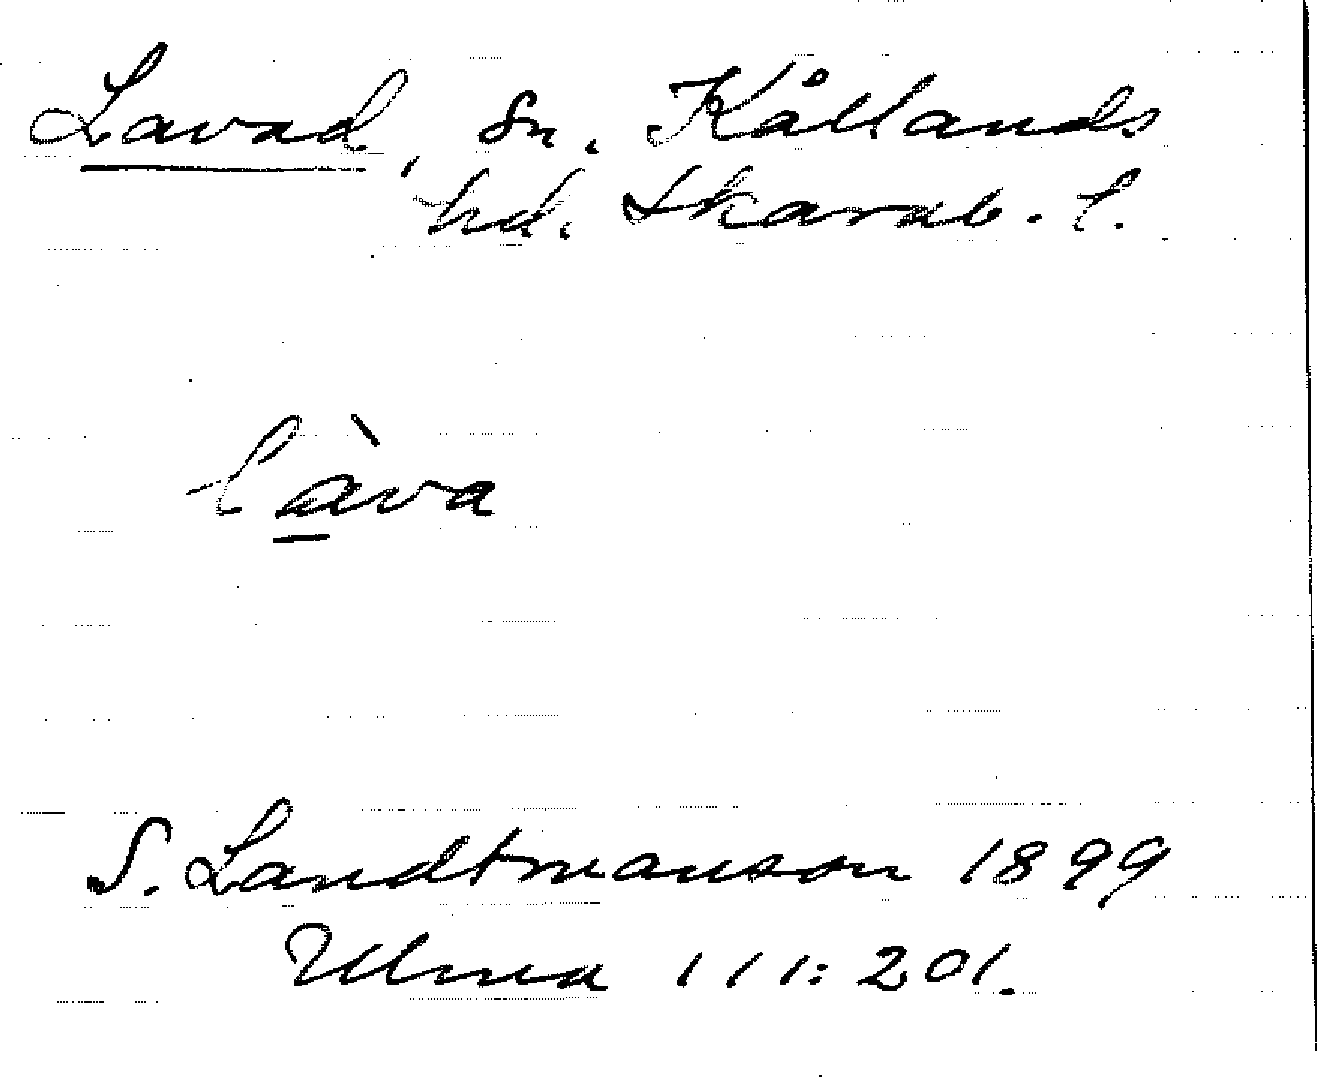 Lavad, sn. Kållands
hd. Skarab. l.
làva
S. Landtmanson 1899
Ulma 111:201.